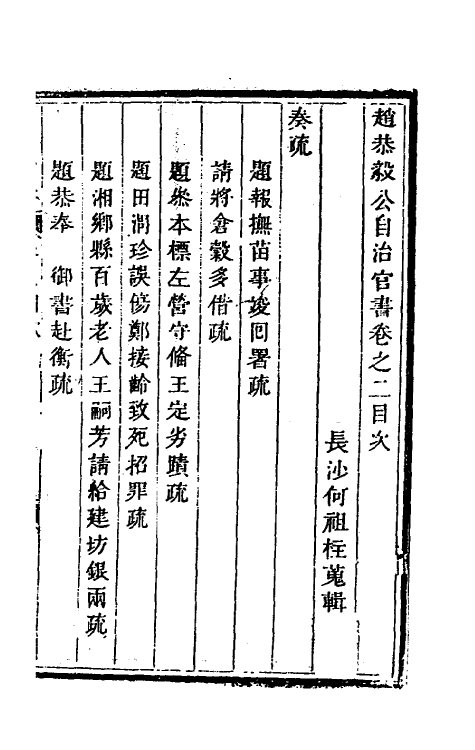 趙恭毅公自治官書卷之二目次
長沙何祖柱蒐輯
奏疏
題報撫苗事竣回署疏
請將倉穀多借疏
題叅本標左營守偹王定劣蹟疏
題田潤珍誤傷鄭接齡致死招罪疏
題湘鄉縣百歲老人王嗣芳請給建坊銀兩疏
題恭奉 御書赴衡疏